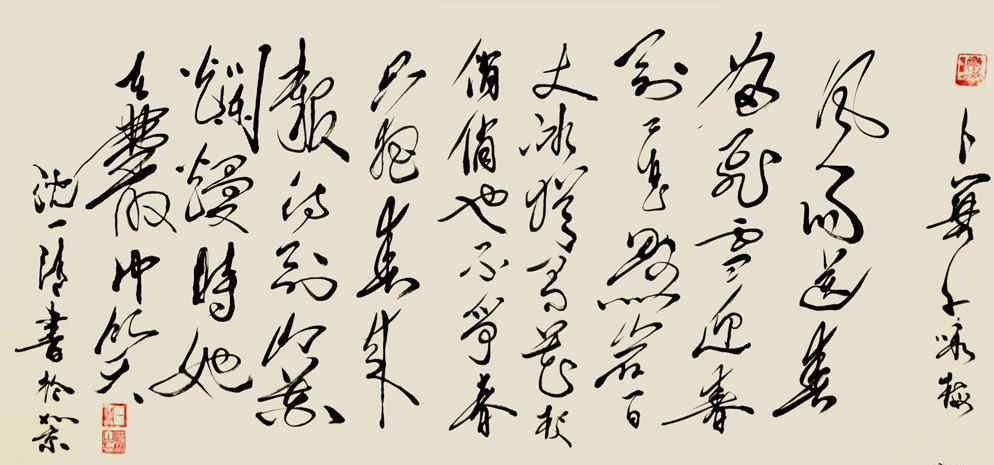 卜算子咏梅
风雨送春
归飞雪迎春
到已是悬崖百
丈冰犹有花枝
俏俏也不争春
只把春来
報待到山花
爛熳時她
在叢中笑
沈一清書於北京